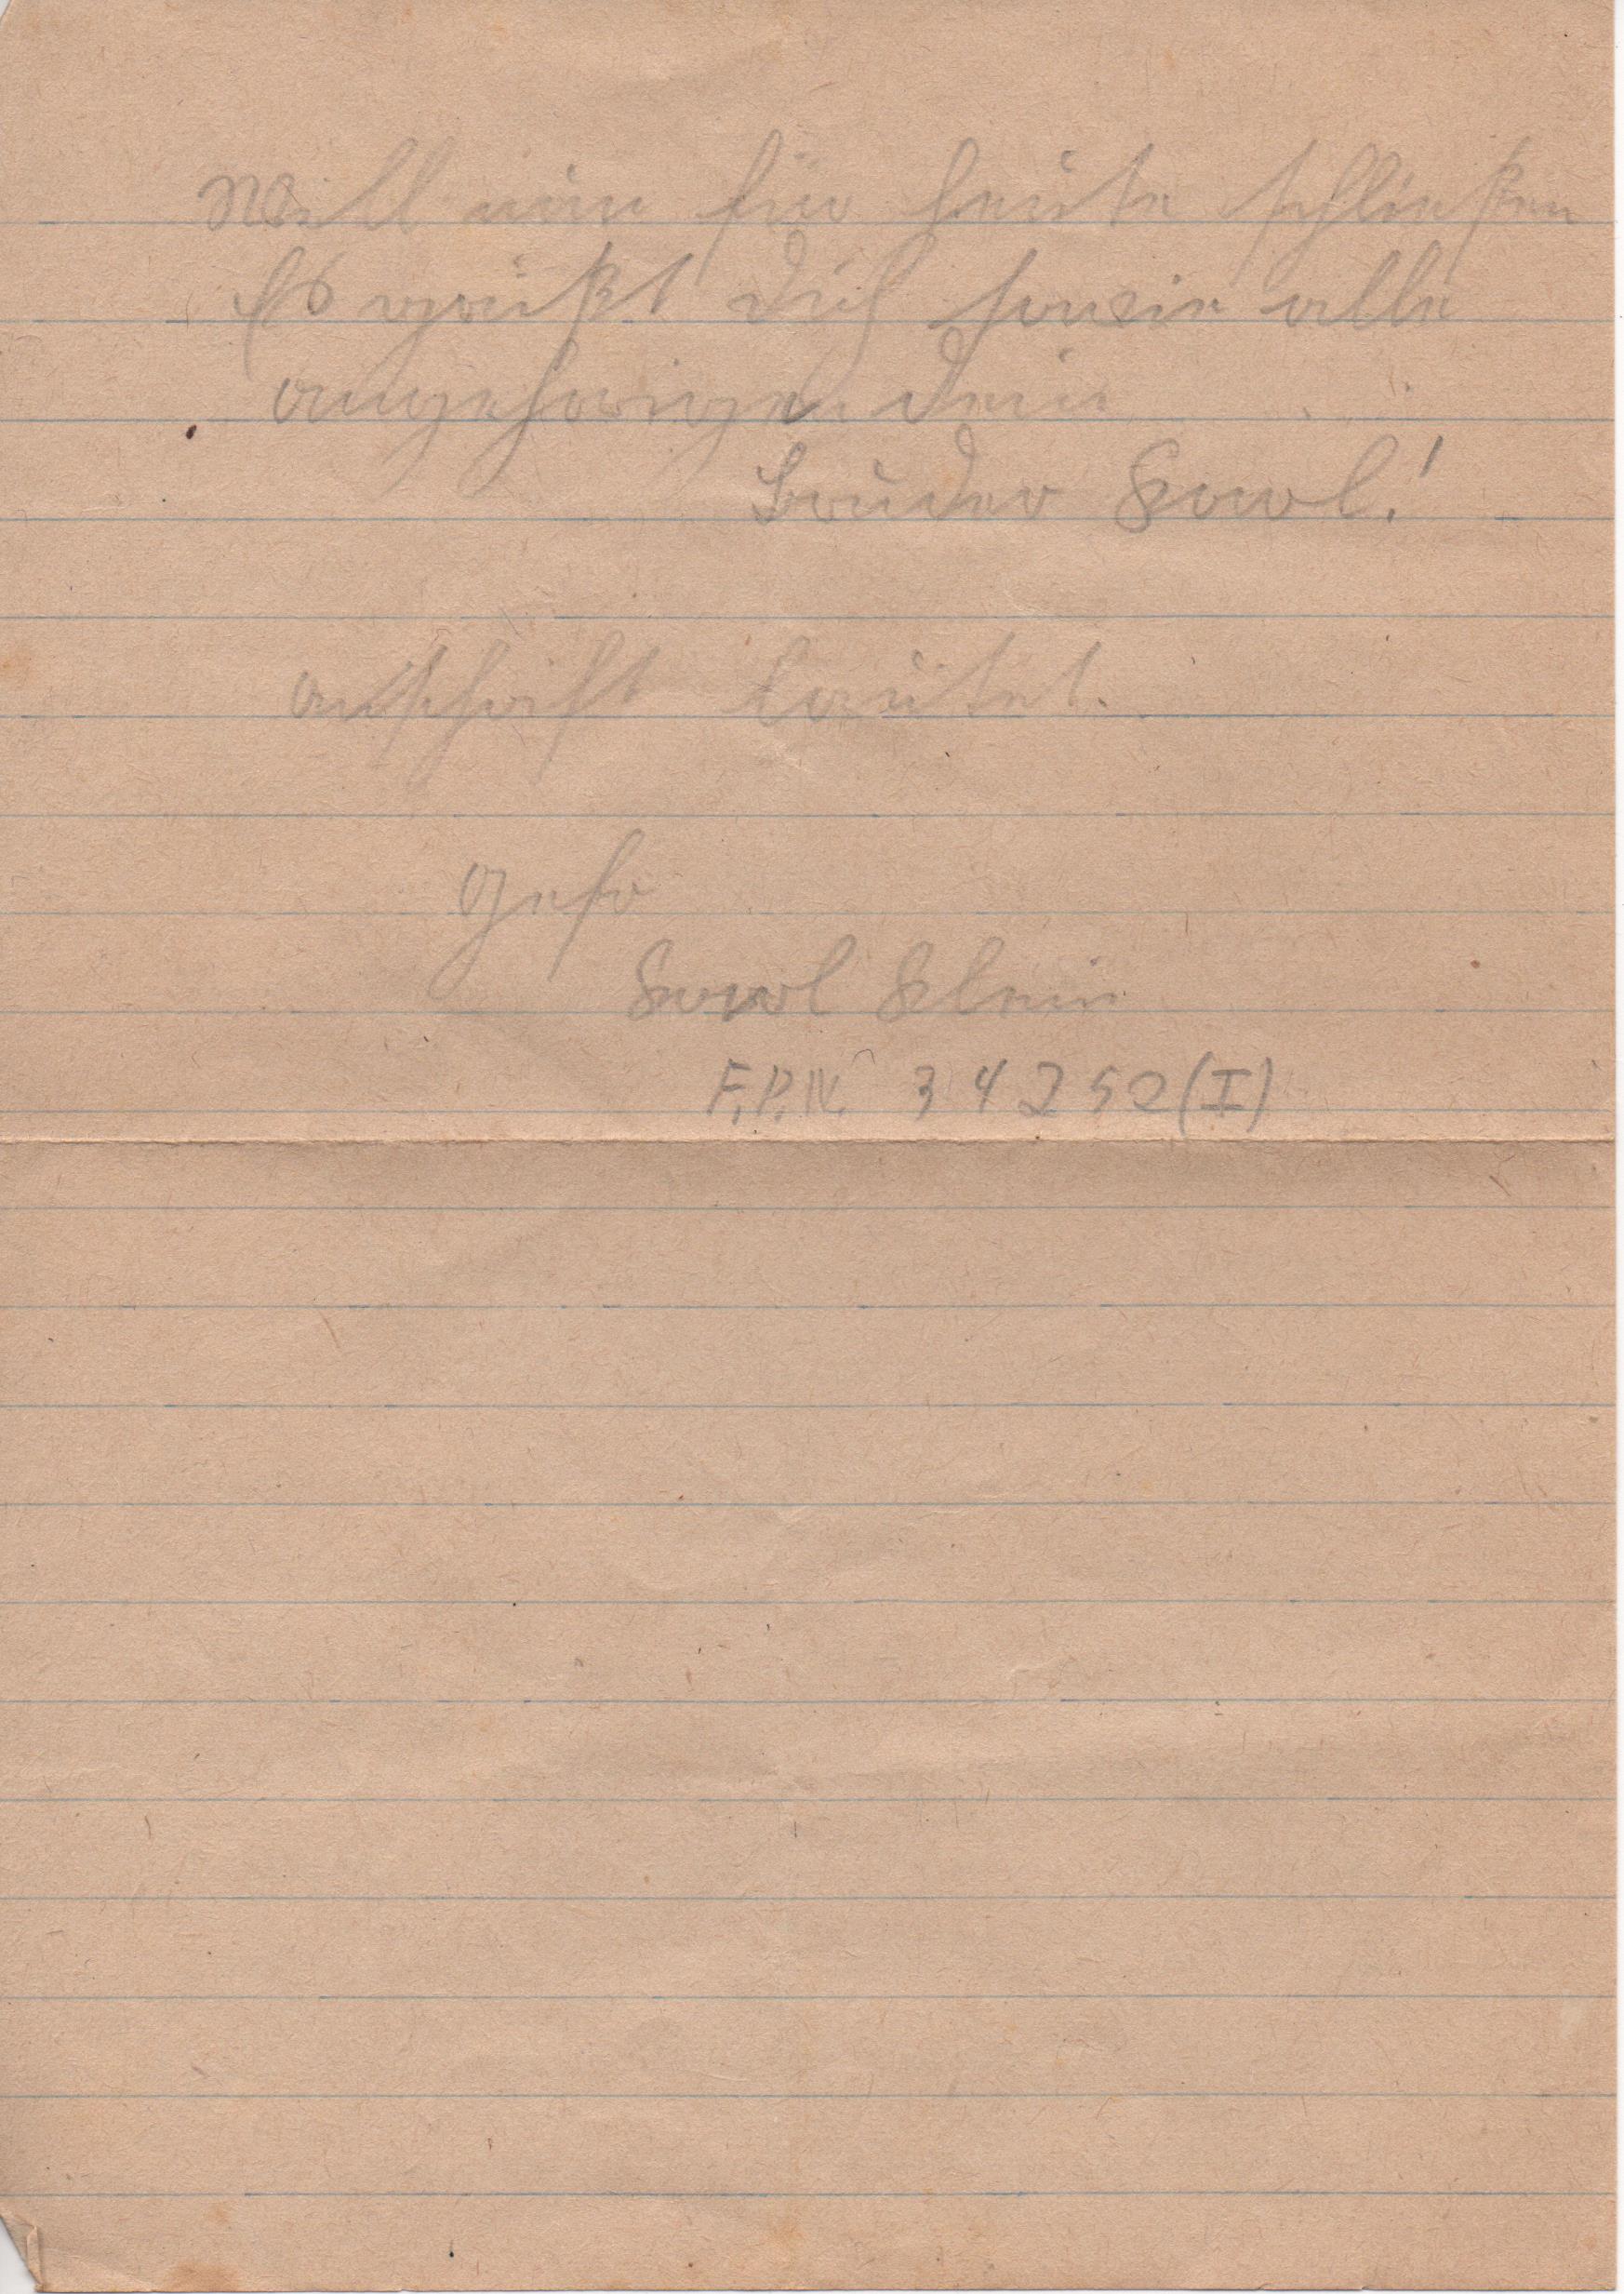 Will nun für heute schließen
Es grüßt Dich sowie alle
angehörigen Dein
Bruder Karl!
anschrift lautet.
Gefr
Karl Klein
F.P.N. 34252(I)